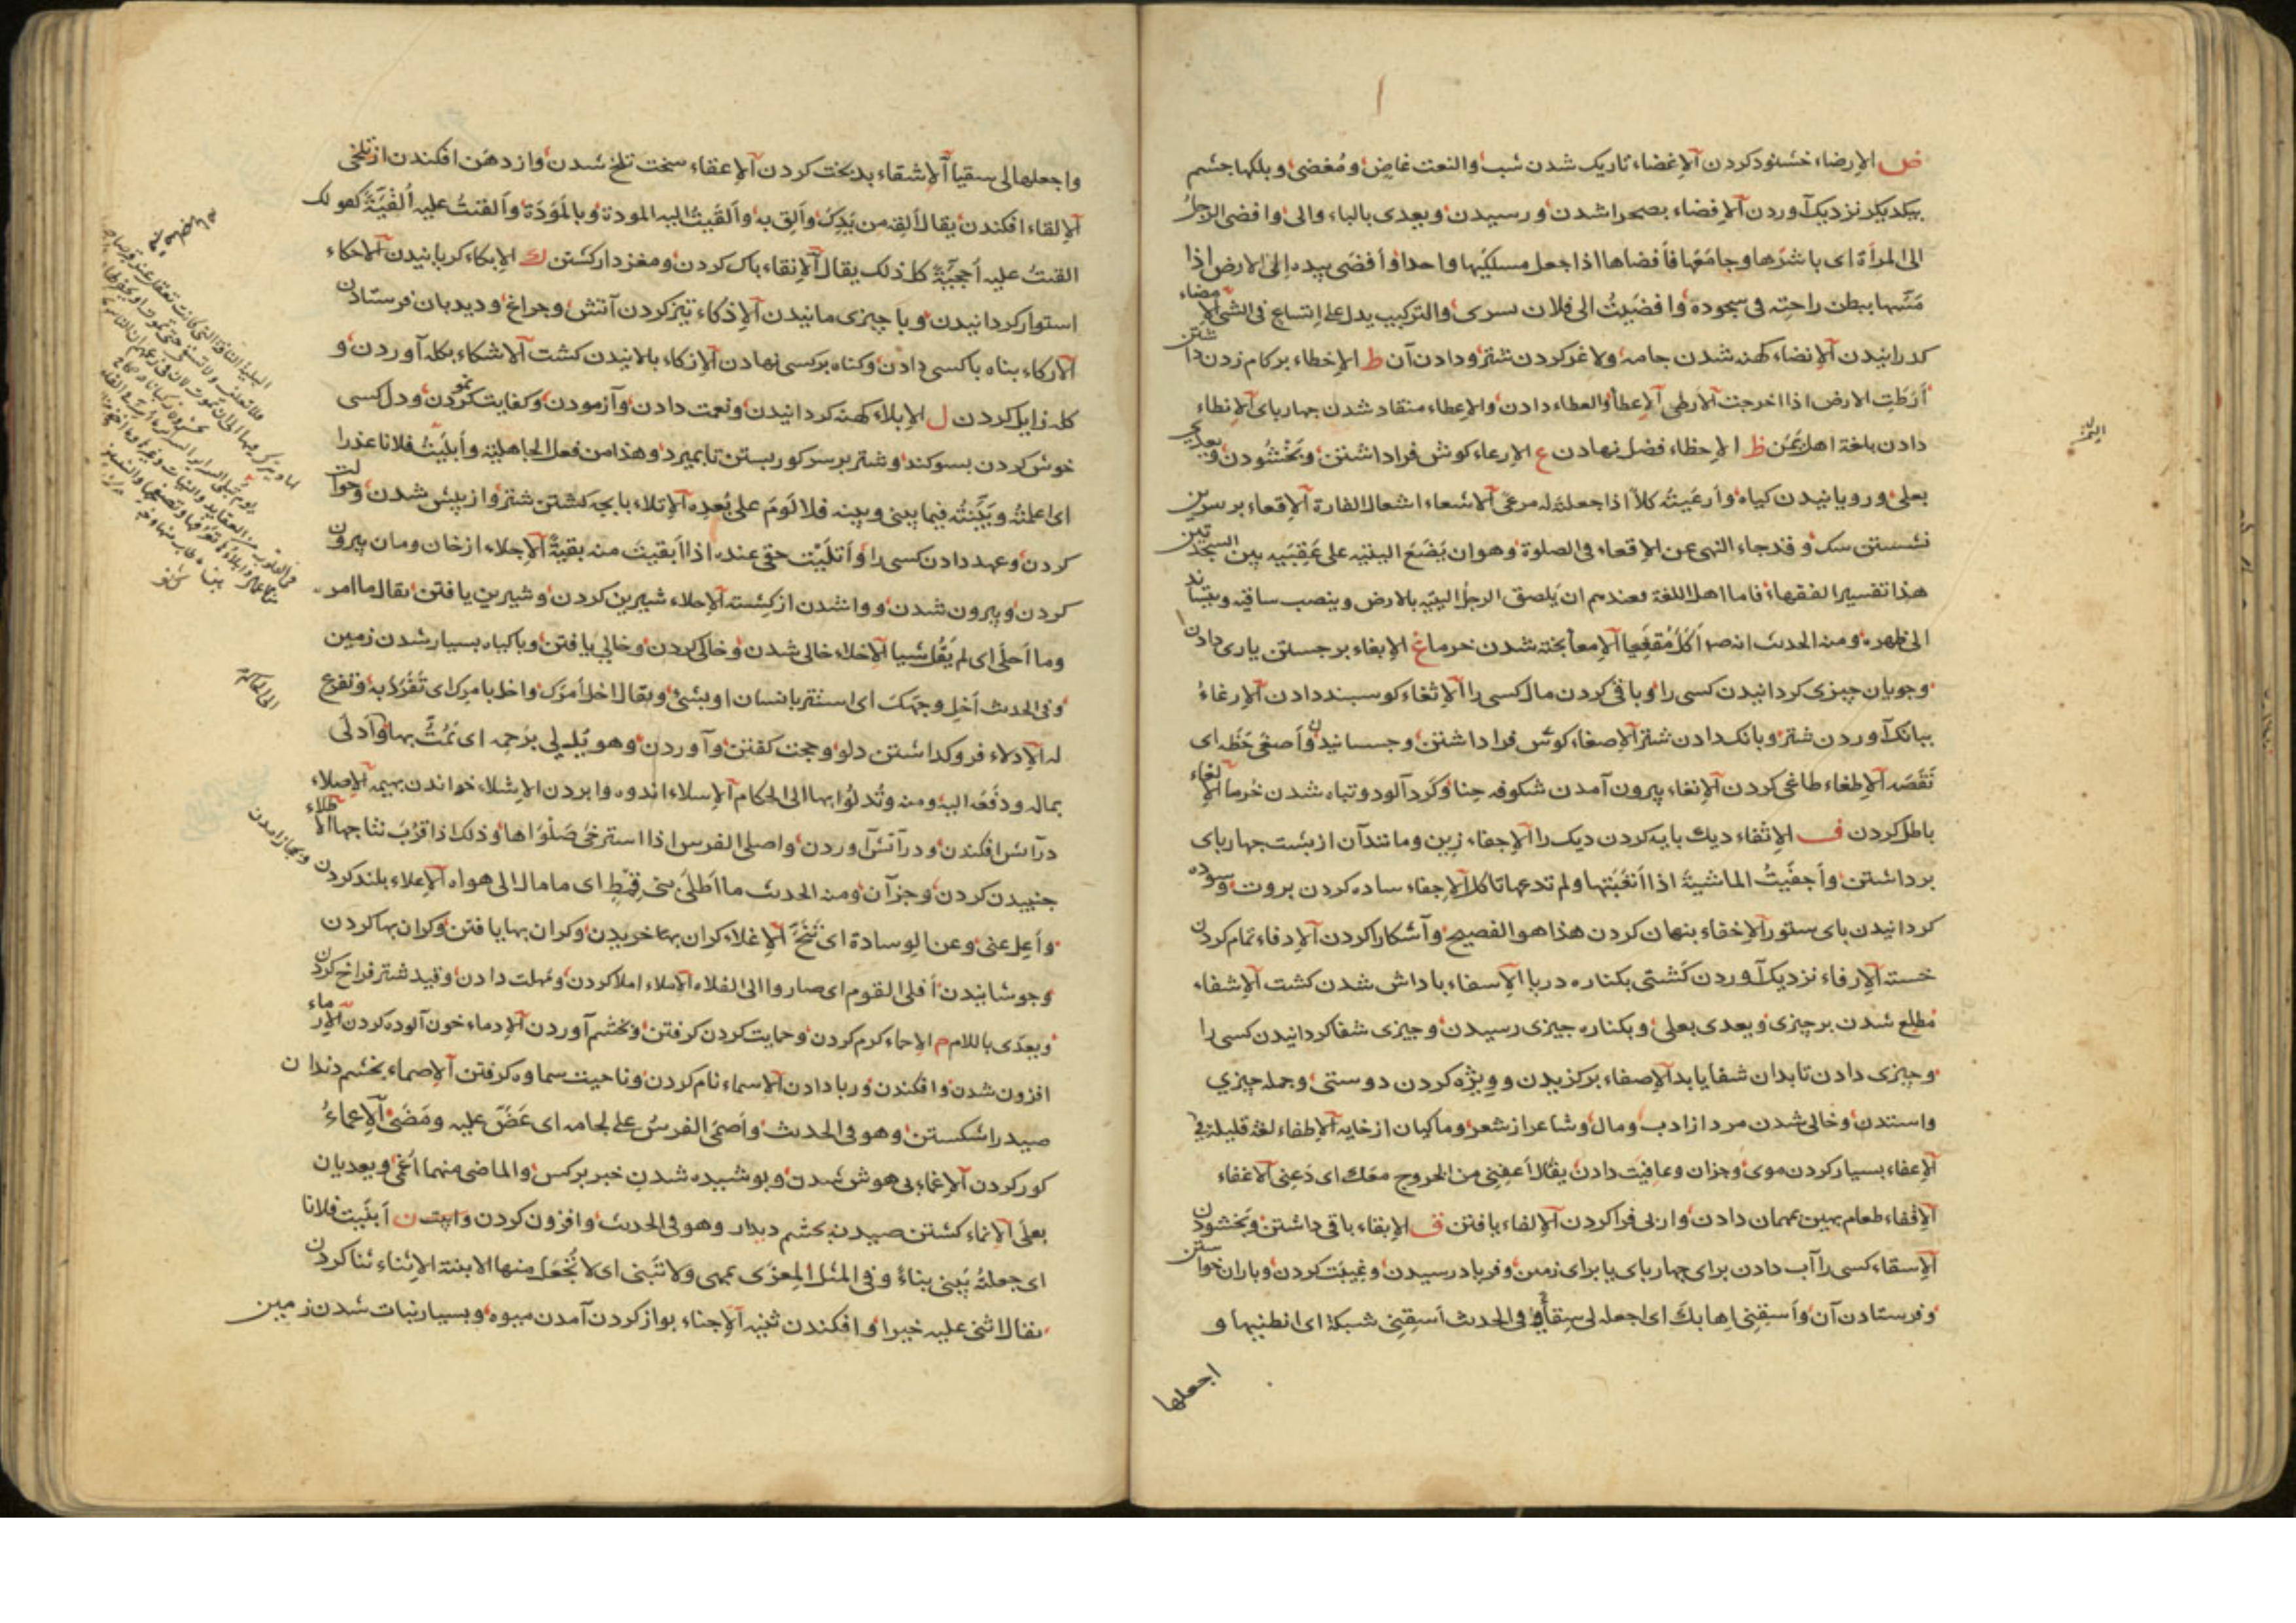 ض الاِرضاء خشنود كردن آلاِغضاء تاريك شدن شب والنعت غاضٍ ومُغضى وبلكها جشم
بيكديكر نزديك آوردن آلاِفضاء بصحرا شدن ورسيدن ويعدى بالباء والى وافضى الرجلُ
الى المراة اى باشرَها وجامَعَها فأفضاها اذا جعل مسلكَيها واحدا وأفضَى بيده الى الارض اذا
مَسَّها ببطن راحتِه فى سجوده وافضَيتُ الى فلان بسرى والتركيب يدل على اتساع فى الشى آلاِمضاء
كذرانيدن آلاِنضاء كهنه شدن جامه ولاغر كردن شتر ودادن آن ط الاِخطاء بر كام زدن داشتن
أرَطَتِ الارض اذا اخرجت آلارطى آلاِعطاء والعطاء دادن والاِعطاء منقاد شدن جهار باى آلاِنطاء
دادن بلغة اهل يَمَن ظ الاِحظاء فضل نهادن ع الاِرعاء كوش فرا داشتن وبَخشُودن ويعدى
بعلى ورويانيدن كياه وأرعَيتُه كلأ اذا جعلته له مرعى آلاشعاء اشعال الغارة آلاِقعاء بر سرين
نشستن سك وقد جاء النهى عن الاِقعاء فى الصلوة وهو ان يَضَعَ اليتيه على عَقِبَيه بين السجدتين
هذا تفسير الفقهاء فاما اهل اللغة فعندهم ان يَلصق الرجلُ اليتيه بالارض وينصب ساقيه ويتساند
الى ظهره ومنه الحديث انه صم أكَلَ مُقعِيا آلاِمعاء بخته شدن خرما غ الاِبغاء بر جستن يارى دادن
وجويان جيزى كردانيدن كسى را وباقى كردن مال كسى را آلاِثغاء كوسبند دادن آلاِرغاء
ببانك آوردن شتر وبانك دادن شتر آلاِصغاء كوش فرا داشتن وجسبانيدن وأصغى حَظّه اى
نَقَصَه آلاِطغاء طاغى كردن آلاِنغاء بيرون آمدن شكوفه حنا وكَرد آلود وتباه شدن خُرما آلاِلغاء
باطل كردن ف الاِثفاء ديك بايه كردن ديك را آلاِجفاء زين ومانند آن از بشت جهار باى
برداشتن وأجفَيتُ الماشيةَ اذا أتعَبتَها ولم تدعها تاكل آلاِحفاء ساده كردن بروت وسوده
كردانيدن باى ستور آلاِخفاء بنهان كردن هذا هو الفصيح وآشكارا كردن آلاِدفاء تمام كردن
خسته آلاِرفاء نزديك آوردن كَشتى بكناره دريا آلاِسفاء باداش شدن كشت آلاِشفاء
مُطلِع شدن بر چيزى ويعدى بعلى وبكناره جيزى رسيدن وجيزى شفا كردانيدن كسى را
وچيزى دادن تا بدان شفا يابد آلاِصفاء بركزيدن وويژه كردن دوستى وجمله چيزي
واستدن وخالى شدن مرد از ادب ومال وشاعر از شعر وماكيان از خايه آلاِطفاء لغة قليلة فى
آلاِعفاء بسيار كردن موى وجز آن وعافيَت دادن يقال أعفِنِى من الخروج معَك اى دَعنِى آلاغفاء
آلاِقفاء طعام بهين بمهمان دادن واز پى فرا كردن آلاِلفاء يافتن ق الاِبقاء باقى داشتن وبَخشودن
آلاِسقاء كسى را آب دادن براى چهار باى يا براى زمين وفرياد رسيدن وغيبَت كردن وباران خواستن
وفرستادن آن وأسقِنى اِهابك اى اجعله لى سِقاءً وفى الحديث أسقِنِى شبكة اى انطنيها و
اجعلها
واجعلها لى سقيا آلاِشقاء بدبخت كردن آلاِعقاء سخت تلخ شدن واز دهَن افكندن از تلخى
آلاِلقاء افكندن يقال ألقِه من يَدِك وألقِ به وألقَيتُ اليه المودة وبالمَوَدّة وألقيتُ عليه اُلقيَّةً كقولك
القيتُ عليه اُحجيَّةً كل ذلك يقال آلاِنقاء باك كردن ومغزدار كشتن ك الاِبكاء كريانيدن آلاحكاء
استوار كردانيدن وبا چيزى مانيدن آلاِذكاء تيز كردن آتش وجراغ وديدبان فرستادن
آلاركاء بناه با كسى دادن وكناه بر كسى نهادن آلاِزكاء بالانيدن كشت آلاشكاء بكله آوردن و
كله زايل كردن ل الاِبلاء كهنه كردانيدن ونعمت دادن وآزمودن وكفايت نمودن ودل كسى
خوش كردن بسوكند وشتر بر سر كور بستن تا بميرد وهذا من فعل الجاهلية وأبلَيتُ فلانا عذرا
اى اعلمتُه وبَيَّنتُه فيما بينى وبينه فلا لَومَ على بُعدِه آلاِتلاء با بچه كشتن شتر واز پيش شدن وحوالت
كردن وعهد دادن كسى را وأتلَيتُ حقى عنده اذا ابقيتَ منه بقيةً آلاِجلاء از خان ومان بيرون
كردن وبيرون شدن ووا شدن از كشته آلاِحلاء شيرين كردن وشيرين يافتن يقال ما امر
وما أحلَى اى لم يَقُل شيا آلاِخلاء خالى شدن وخالى كردن وخالى يافتن وبا كياه بسيار شدن زمين
وفى الحديث أخلِ وجهكَ اى استتر بانسان او بشئ ويقال اخل أمرَك واخل بامرك اى تَفَرّد به وتفرغ
له آلاِدلاء فرو كذاشتن دلو وحجت كفتن وآوردن وهو يُدلِى برَحِمِه اى يَمُتُّ بها وأدلَى
بماله ودَفَعَه اليه ومنه وتُدلُوا بها الى الحكام آلاِسلاء اندوه وا بردن الاِشلاء خواندن بهيمه آلاِصلاء
در آتش افكندن ودر آتش آوردن واصلى الفرس اذا استرخَى صَلَوَاها وذلك اذا قَرُبَ نتاجها آلاِطلاء
جنبيدن كردن وجز آن ومنه الحديث ما اَطلَى نبى قِطّ اى ما مال الى هواه آلاِعلاء بلند كردن
وأعل عنى وعن الوسادة اى تَنَحَّ آلاِغلاء كران بها خريدن وكران بها يافتن وكران بها كردن
وجوشانيدن أفلى القوم اى صاروا الى الفلاه آلاِملاء املا كردن ومُهلت دادن وقيد شتر فراخ كردن
ويعدَى باللام م الاِحماء كرم كردن وحمايت كردن كرفتن وبخشم آوردن آلاِدماء خون آلوده كردن آلاِرماء
افزون شدن وافكندن وربا دادن آلاسماء نام كردن وناحيت سماوه كرفتن آلاِصماء بخشم دندان
صيد را شكستن وهو فى الحديث وأصمَى الفرسُ على لجامه اى عَضّ عليه ومَضَى آلاِعماءُ
كور كردن آلاِغماء بى هوش شدن وپوشيده شدن خبر بر كس والماضى منهما اُغمى ويعديان
بعلَى آلاِنماء كشتن صيد نه بچشم ديدار وهو فى الحديث وافزون كردن ن أبنَيت فلانا
اى جعلتُه يَبنِى بناءً وفى المثل المِعزَى تبهى ولا تَبنى اى لا تُجعَل منها الابنية الاِثناء ثنا كردن
يقال اثنى عليه خيرا وافكندن ثنيه آلاِجناء بواز كردن آمدن ميوه وبسيار نبات شدن زمين
الى الحاكم